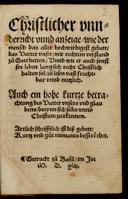 Christlicher vnn
derricht vnnd anzeig wie der
mensch das aller hochwirdigest gebett/
das Vatter vnser/ mit rechtem verstand
zů Gott betten. Vnnd wie er auch sonst
sin leben lang sich recht Christlich
halten sol/ zů lesen vast frucht-
bar vnnd nutzlich.
Auch ein hohe kurtze betra
chtung des Vatter vnsers vnd glau
bens/ dory mich selbs vnnd
Christum zů erkennen.
Artlich schriftlich ist diß gebett/
Kurtz vnd gůt niemants besser hett.
Getruckt zů Basel/ im Jor
M. D.